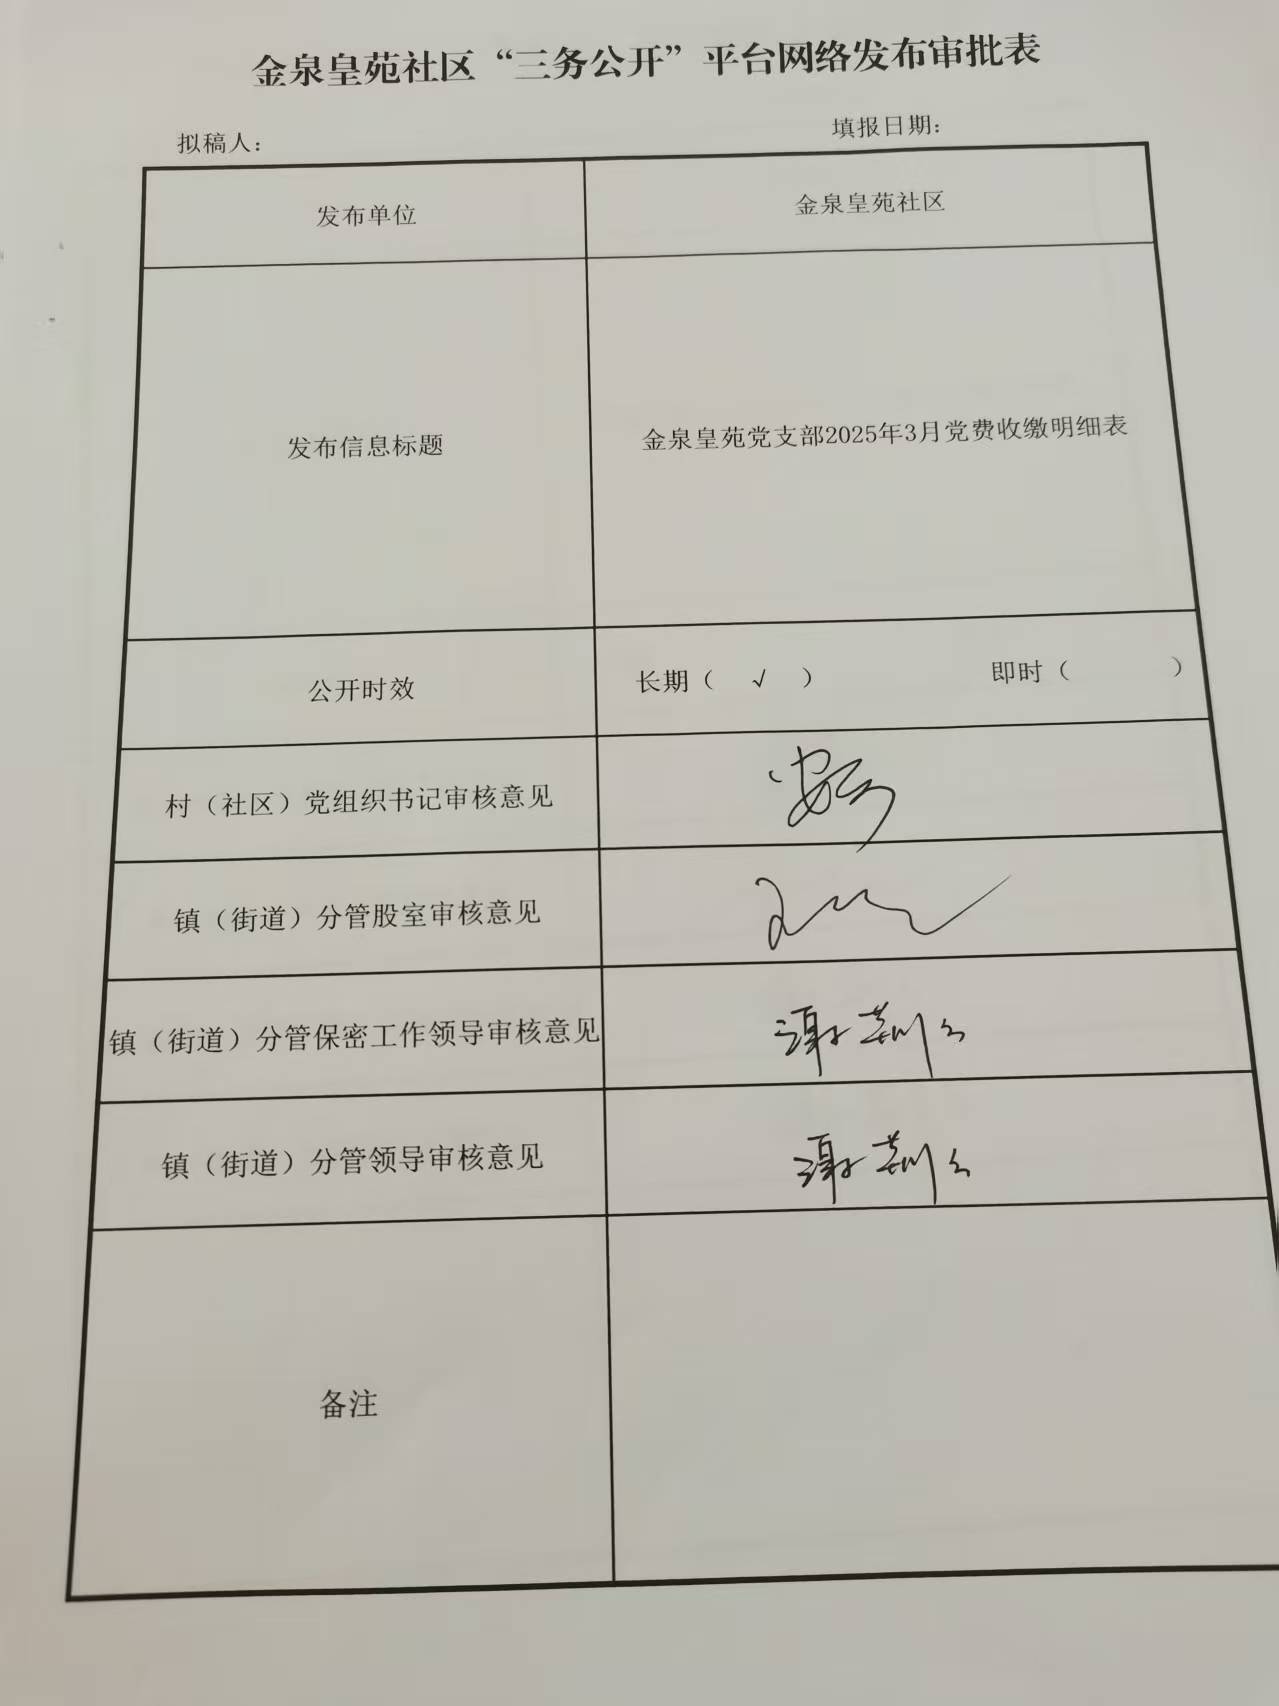 金泉皇苑社区“三务公开”平台网络发布审批表
拟稿人： 填报日期：
发布单位 金泉皇苑社区
发布信息标题 金泉皇苑党支部2025年3月党费收缴明细表
公开时效 长期（ √ ） 即时（ ）
村（社区）党组织书记审核意见
镇（街道）分管股室审核意见
镇（街道）分管保密工作领导审核意见
镇（街道）分管领导审核意见
备注